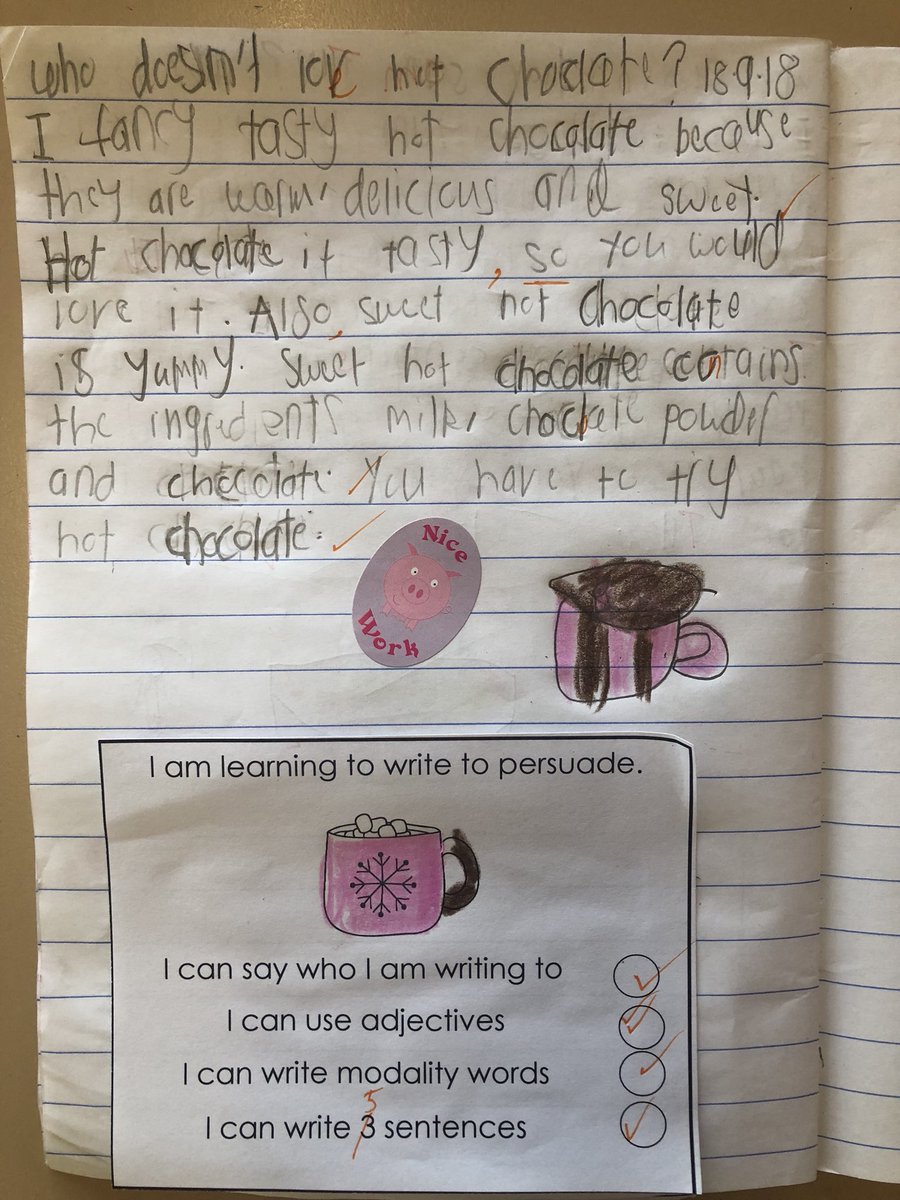 who doesn't love hot chocolate? 18.9.18
I fancy tasty hot chocolate because
they are warm, delicious and sweet.
Hot chocolate it tasty, so you would
love it. Also, sweet hot chocolate
is yummy. Sweet hot chocolate contains
the ingredients milk, choclete powder
and chocolate. You have to try
hot chocolate.
Nice
Work
I am learning to write to persuade.
I can say who I am writing to
I can use adjectives
I can write modality words
5
I can write 3 sentences